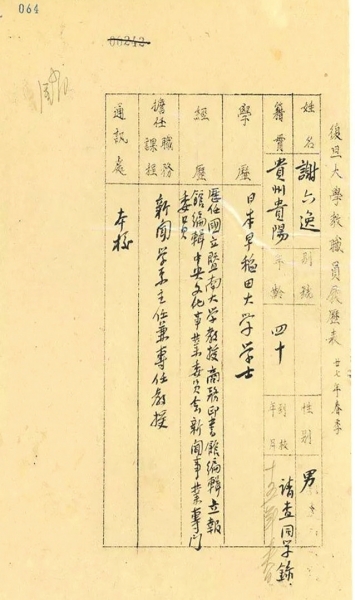 064
00242
復旦大學教職員履歷表 廿七年春季
姓名 謝六逸 別號 性別 男
籍貫 貴州貴陽 年齡 四十 到校年月 請查同学錄
學歷 日本早稲田大学学士
經歷 歷任國立暨南大学教授商務印書館編輯立報
館編輯中央文化事業委員会新聞事業專門
委員
擔任職務課程 新聞学系主任兼專任教授
通訊處 本校